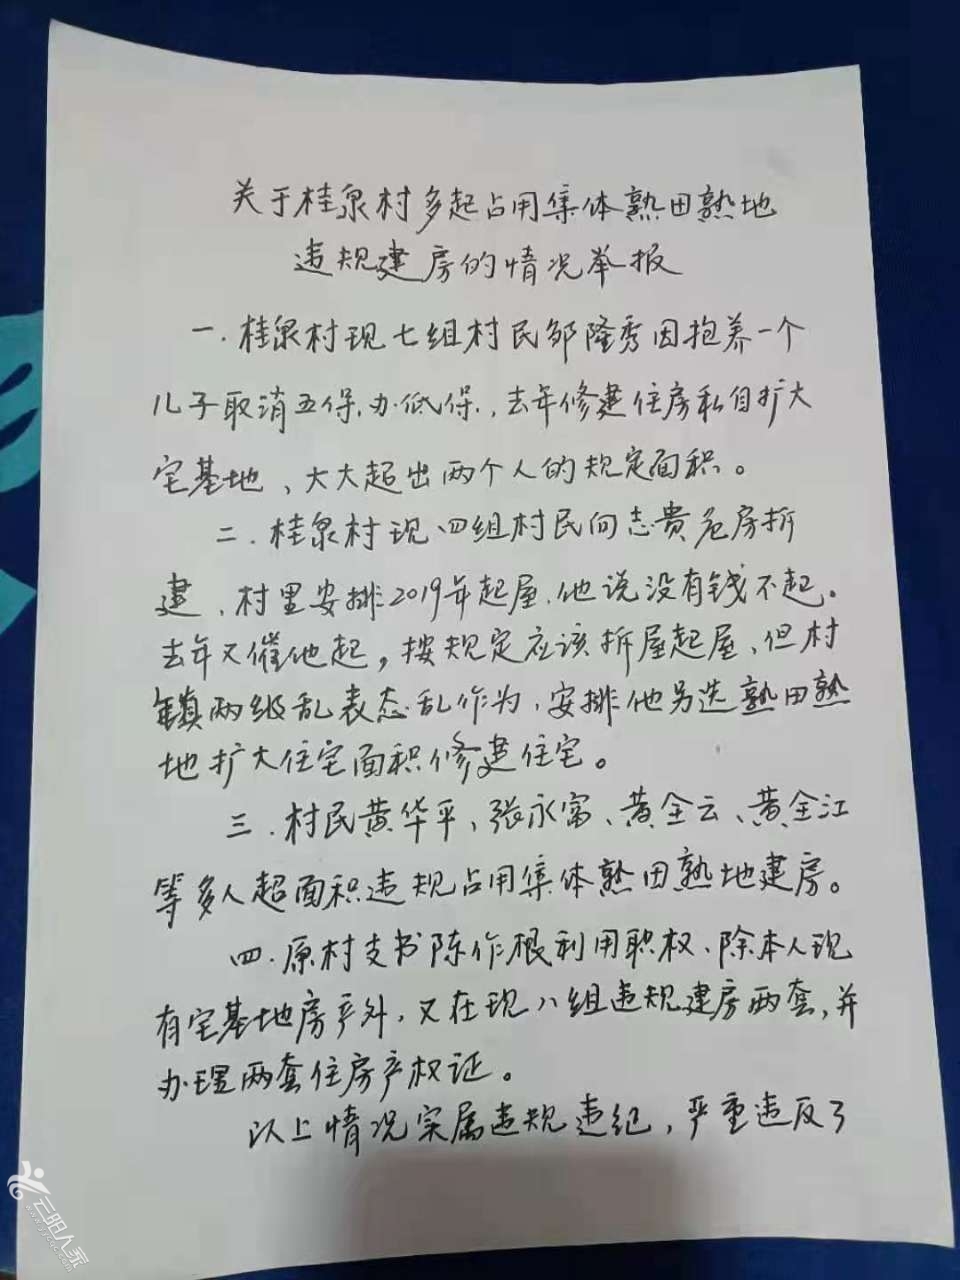 关于桂泉村多起占用集体熟田熟地
违规建房的情况举报
一.桂泉村现七组村民邹隆秀因抱养一个
儿子取消五保,办低保,去年修建住房私自扩大
宅基地、大大超出两个人的规定面积。
二.桂泉村现四组村民向志贵危房拆
建、村里安排2019年起屋.他说没有钱不起。
去年又催他起,按规定应该拆屋起屋、但村
镇两级乱表态乱作为、安排他另选熟田熟
地扩大住宅面积修建住宅。
三.村民黄华平、张永富、黄全云、黄全江
等多人超面积违规占用集体熟田熟地建房。
四.原村支书陈作根利用职权、除本人现
有宅基地房产外,又在现八组违规建房两套,并
办理两套住房产权证。
以上情况实属违规违纪,严重违反了
云阳人家